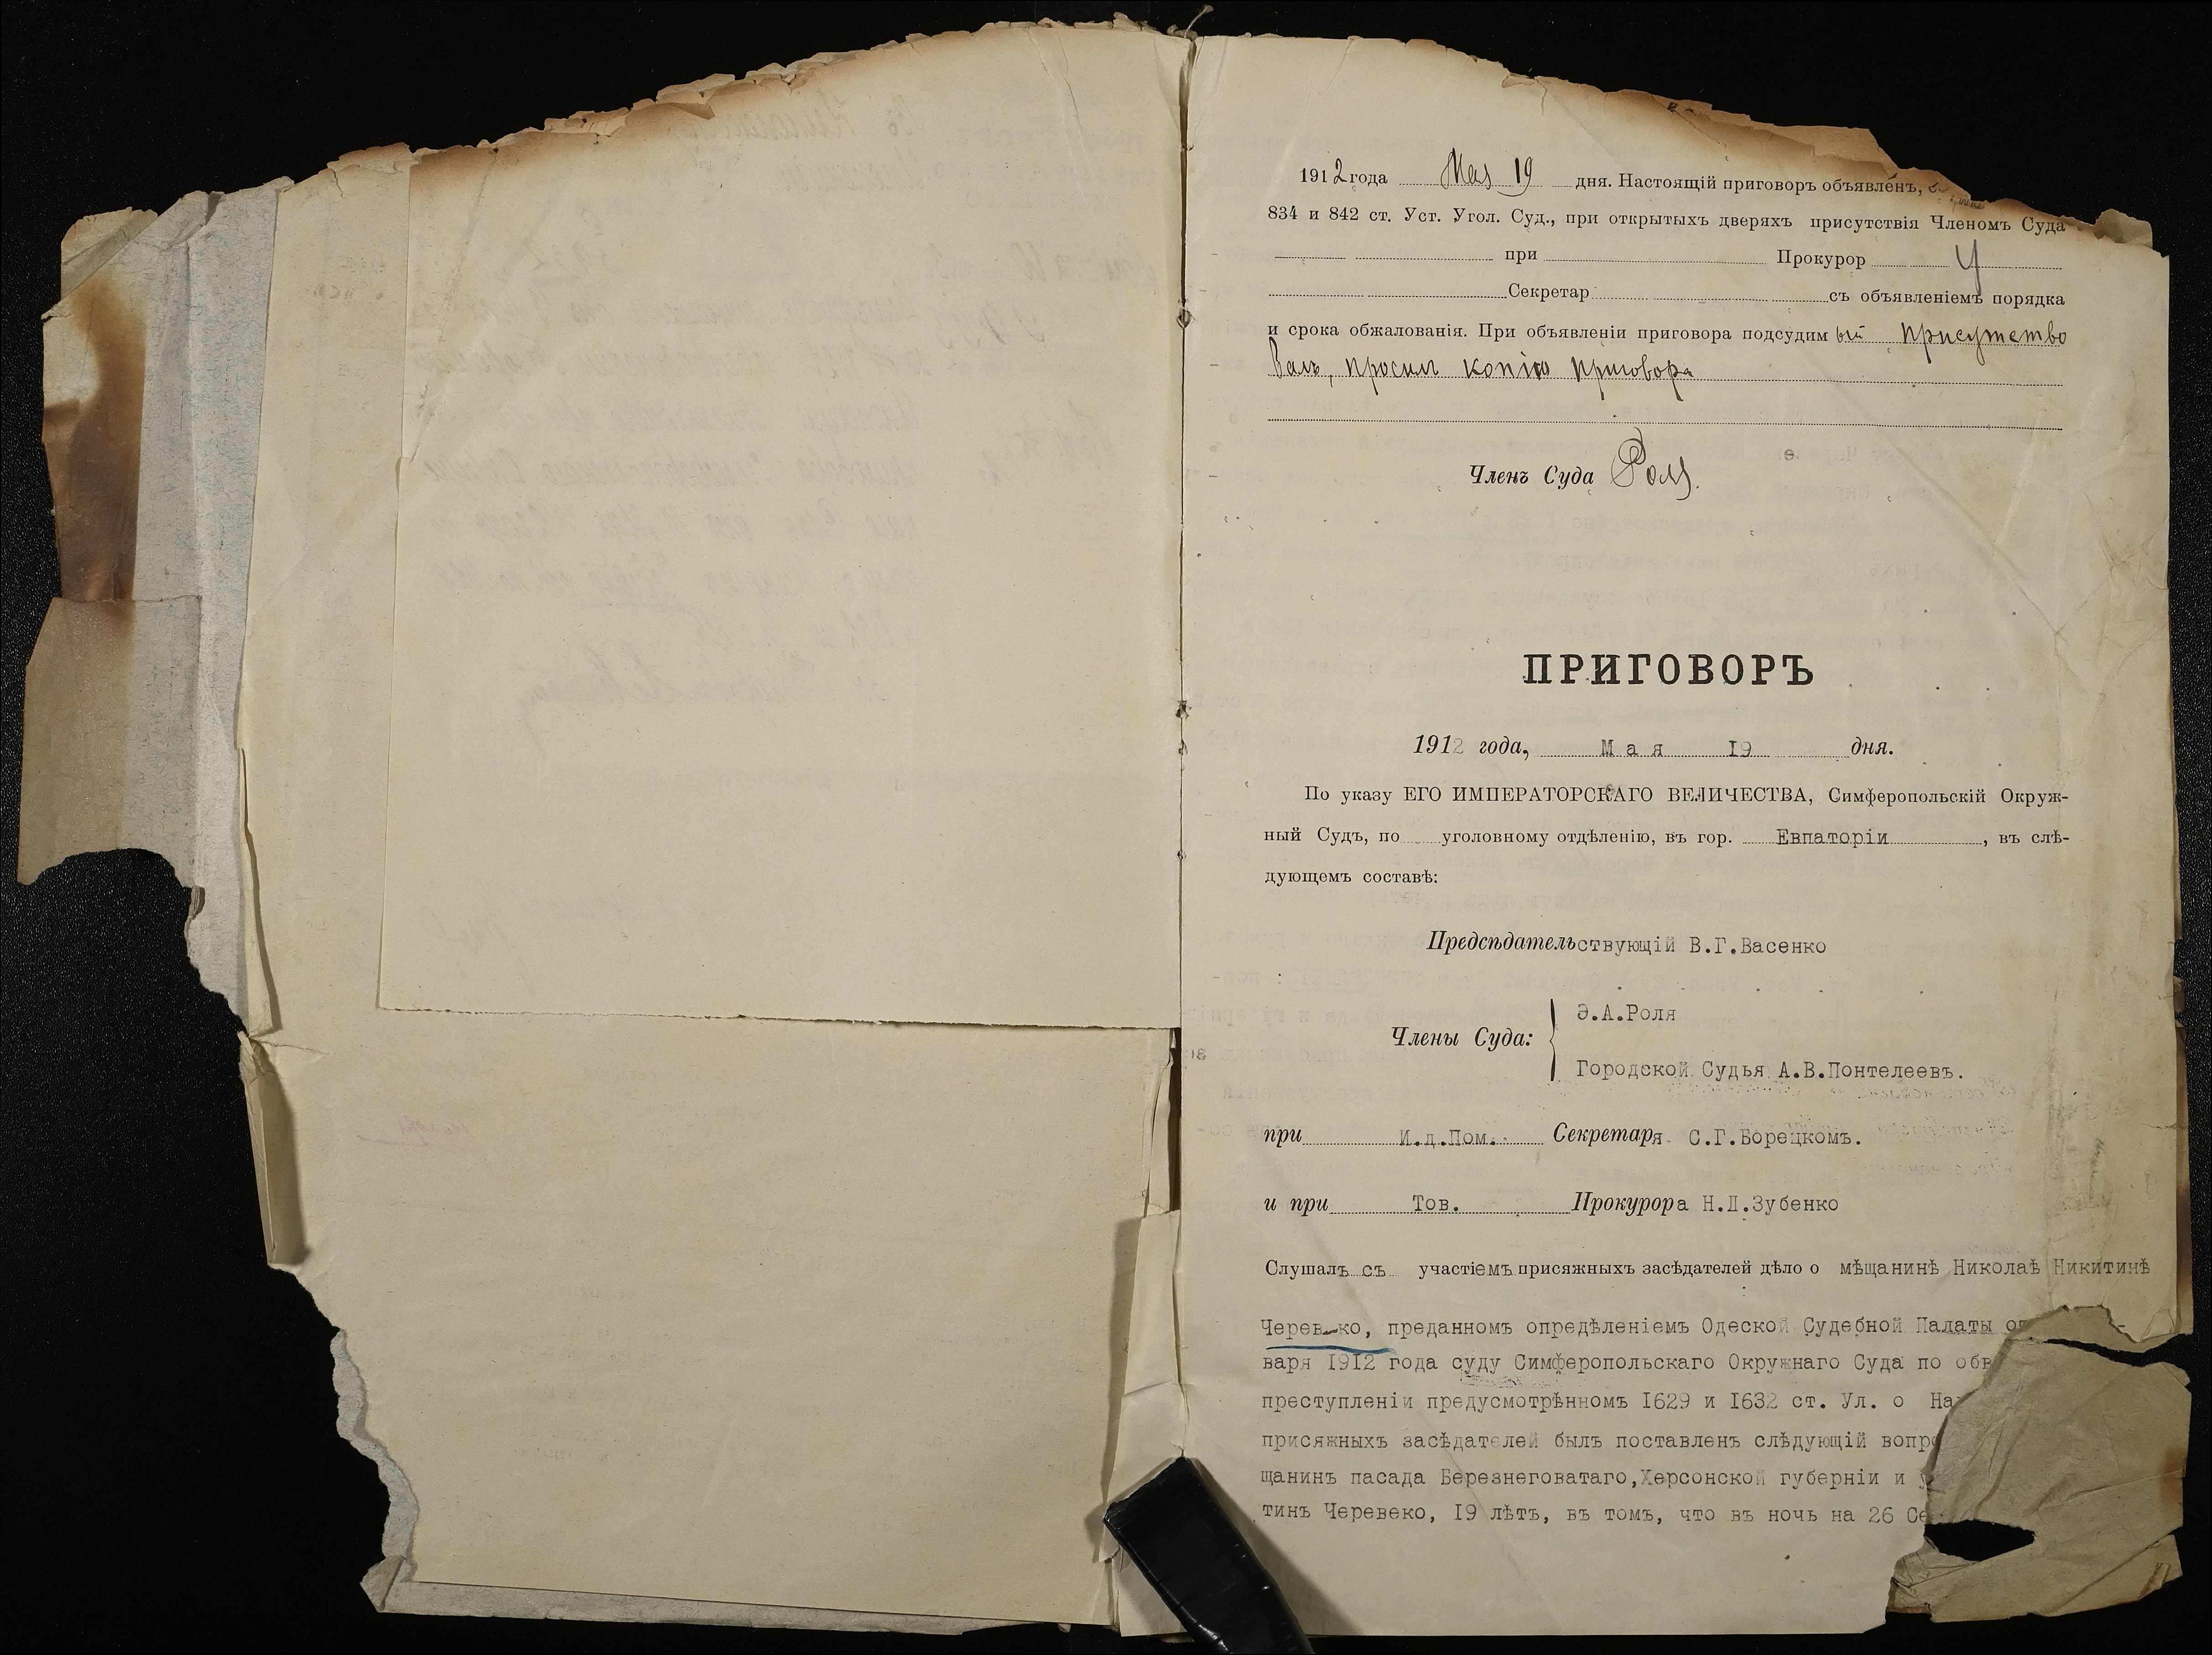 1912 года Мая 19 дня. Настоящій приговоръ объявленъ,
834 и 842 ст. Уст. Угол. Суд., при открытыхъ дверяхъ присутствія Членомъ Суда
при Прокурор
Секретар съ объявленіемъ порядка
и срока обжалованія. При объявленіи приговора подсудимый присутство
валъ, просил копію приговора
Членъ Суда Роля.
ПРИГОВОРЪ
1912 года, Мая 19 дня.
По указу ЕГО ИМПЕРАТОРСКАГО ВЕЛИЧЕСТВА, Симферопольскій Окруж-
ный Судъ, по уголовному отдѣленію, въ гор. Евпаторіи, въ слѣ-
дующемъ составѣ:
Предсѣдательствующій В.Г.Васенко
Члены Суда:
Э.А.Роля
Городской Судья А.В.Понтелеевъ.
при И.д.Пом. Секретаря С.Г.Борецкомъ.
и при Тов. Прокурора Н.Д.Зубенко
Слушалъ съ участіемъ присяжныхъ засѣдателей дѣло о мѣщанинѣ Николаѣ Никитинѣ
Черевко, преданномъ опредѣленіемъ Одеской Судебной Палаты от
варя 1912 года суду Симферопольскаго Окружнаго Суда по обв
преступленіи предусмотрѣнномъ 1629 и 1632 ст. Ул. о На
присяжныхъ засѣдателей былъ поставленъ слѣдующій вопро
щанинъ пасада Березнеговатаго,Херсонской губерніи и у
тинъ Черевеко, 19 лѣтъ, въ томъ, что въ ночь на 26 Се